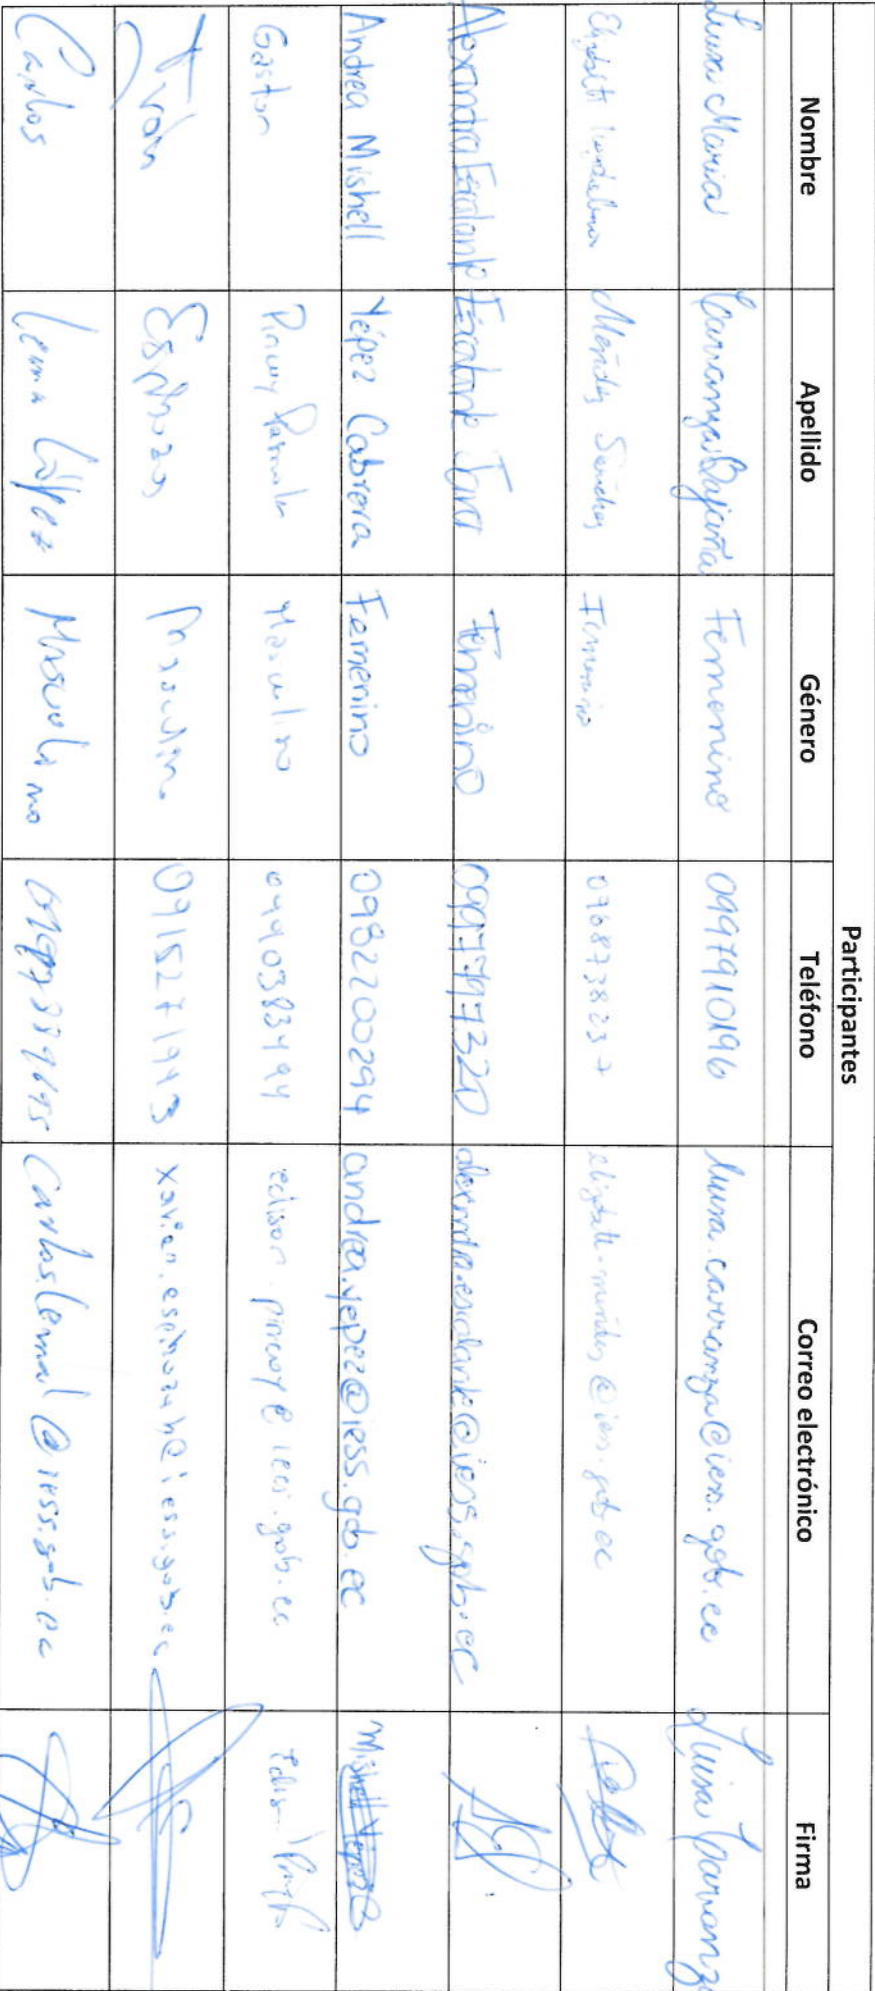 Participantes
Nombre Apellido Género Teléfono Correo electrónico Firma
Luisa Maria Carranza Bajaña Femenino 0997910196 luisa.carranza@iess.gob.ec Luisa Carranza
Elizabeth Méndez Sánchez Femenino 0968738237 elizabeth.mendez@iess.gob.ec
Alexandra Escalante Escalante Jara Femenino 0997797320 alexandra.escalante@iess.gob.ec
Andrea Mishell Yépez Cabrera Femenino 0982200294 andrea.yepez@iess.gob.ec Mishell Yépez
Gaston Pincay Masculino edison.pincay@iess.gob.ec Edison
Iván Espinoza Masculino xavier.espinozah@iess.gob.ec
Carlos Lema López Masculino Carlos.lemal@iess.gob.ec